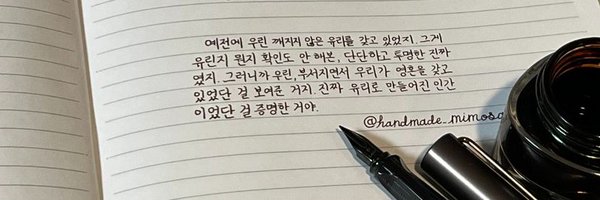 예전에 우린 깨지지 않은 유리를 갖고 있었지. 그게
유린지 뭔지 확인도 안 해본, 단단하고 투명한 진짜
였지. 그러니까 우린, 부서지면서 우리가 영혼을 갖고
있었단 걸 보여준 거지. 진짜 유리로 만들어진 인간
이었단 걸 증명한 거야.
@handmade_mimosa